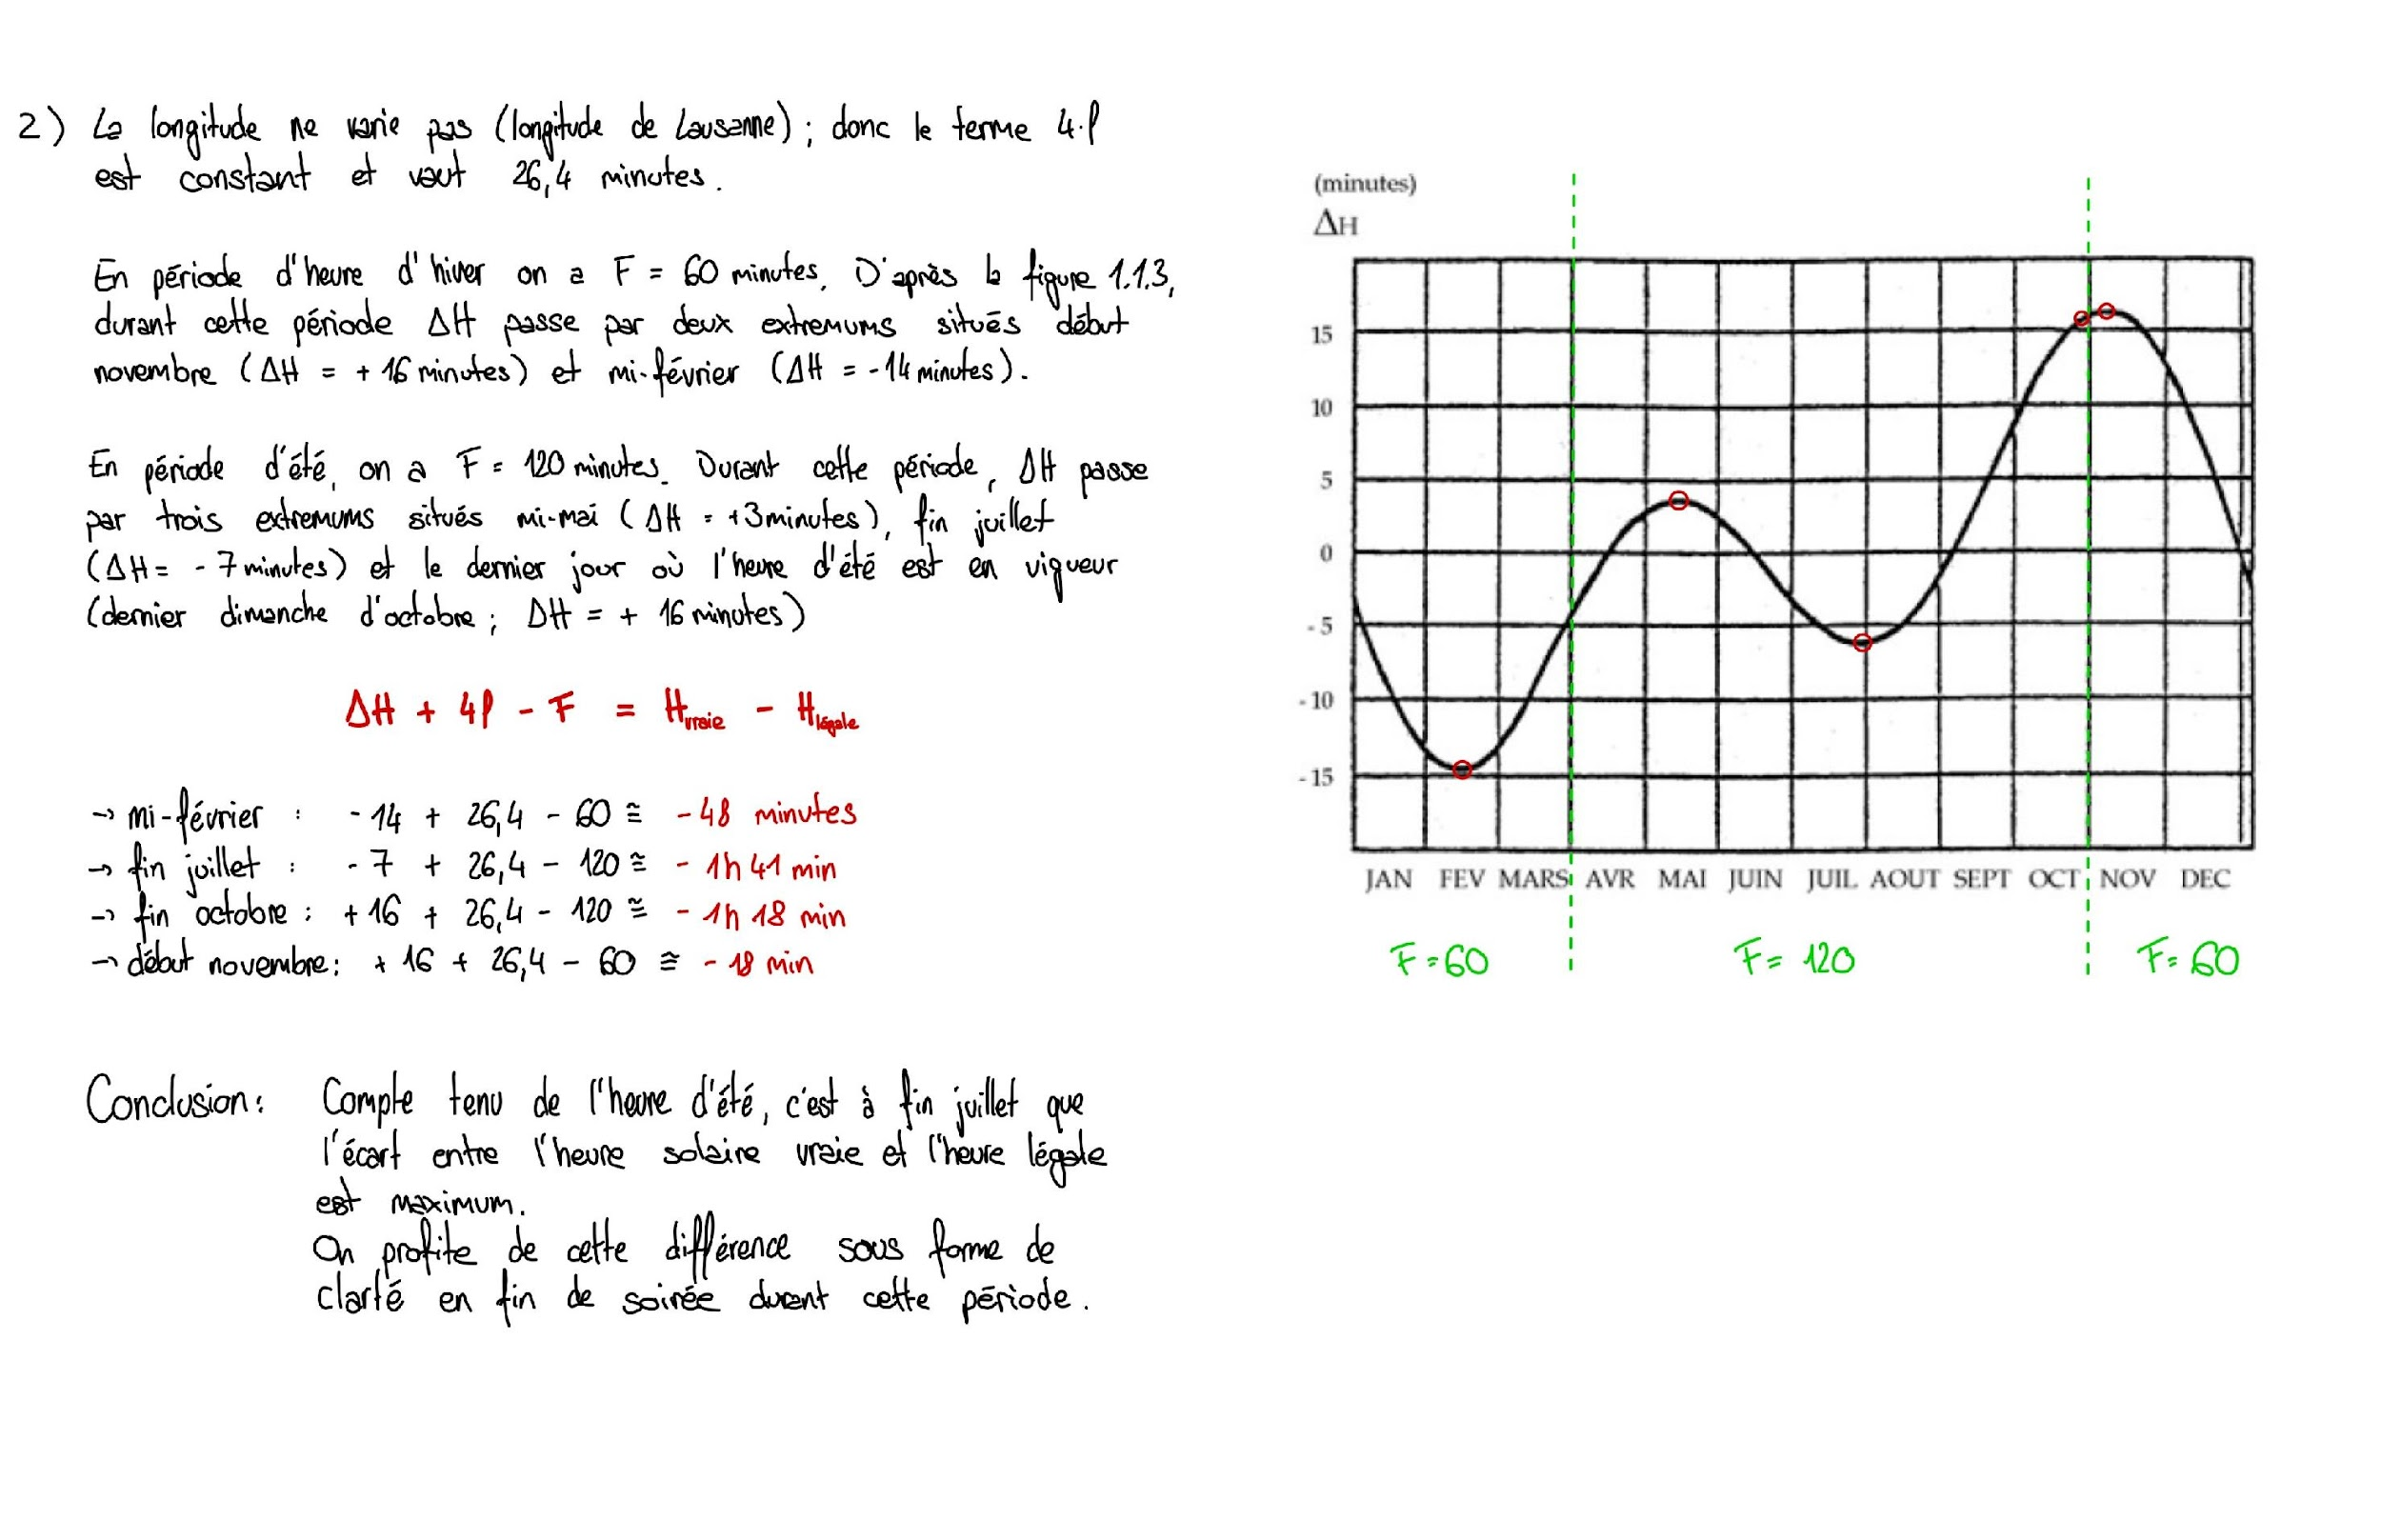 2) La longitude ne varie pas (longitude de Lausanne) ; donc le terme 4·l
est constant et vaut 26,4 minutes.
En période d'heure d'hiver on a F = 60 minutes. D'après la figure 1.1.3,
durant cette période ΔH passe par deux extremums situés début
novembre (ΔH = + 16 minutes) et mi-février (ΔH = - 14 minutes).
En période d'été, on a F = 120 minutes. Durant cette période, ΔH passe
par trois extremums situés mi-mai (ΔH = +3 minutes), fin juillet
(ΔH = - 7 minutes) et le dernier jour où l'heure d'été est en vigueur
(dernier dimanche d'octobre ; ΔH = + 16 minutes)
ΔH + 4l - F = Hvraie - Hlégale
→ mi-février : - 14 + 26,4 - 60 ≅ - 48 minutes
→ fin juillet : - 7 + 26,4 - 120 ≅ - 1h 41 min
→ fin octobre : + 16 + 26,4 - 120 ≅ - 1h 18 min
→ début novembre : + 16 + 26,4 - 60 ≅ - 18 min
Conclusion : Compte tenu de l'heure d'été, c'est à fin juillet que
l'écart entre l'heure solaire vraie et l'heure légale
est maximum.
On profite de cette différence sous forme de
clarté en fin de soirée durant cette période.
(minutes)
ΔH
15
10
5
0
- 5
- 10
- 15
JAN FEV MARS AVR MAI JUIN JUIL AOUT SEPT OCT NOV DEC
F = 60 F = 120 F = 60